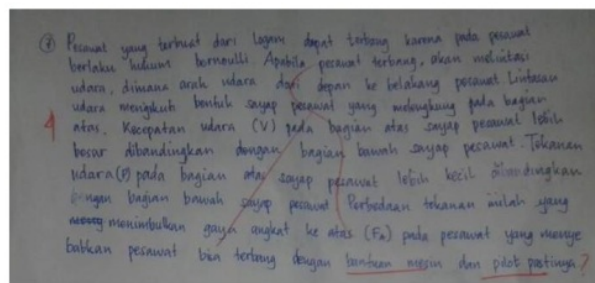 ⑦ Pesawat yang terbuat dari logam dapat terbang karena pada pesawat
berlaku hukum bornoulli. Apabila pesawat terbang, akan melintasi
udara, dimana arah udara dari depan ke belakang pesawat. Lintasan
udara mengikuti bentuk sayap pesawat yang melengkung pada bagian
4 atas. Kecepatan udara (V) pada bagian atas sayap pesawat lebih
besar dibandingkan dengan bagian bawah sayap pesawat. Tekanan
udara (P) pada bagian atas sayap pesawat lebih kecil dibandingkan
dengan bagian bawah sayap pesawat. Perbedaan tekanan inilah yang
menimbulkan gaya angkat ke atas (FA) pada pesawat yang menye
babkan pesawat bisa terbang dengan bantuan mesin dan pilot pastinya?